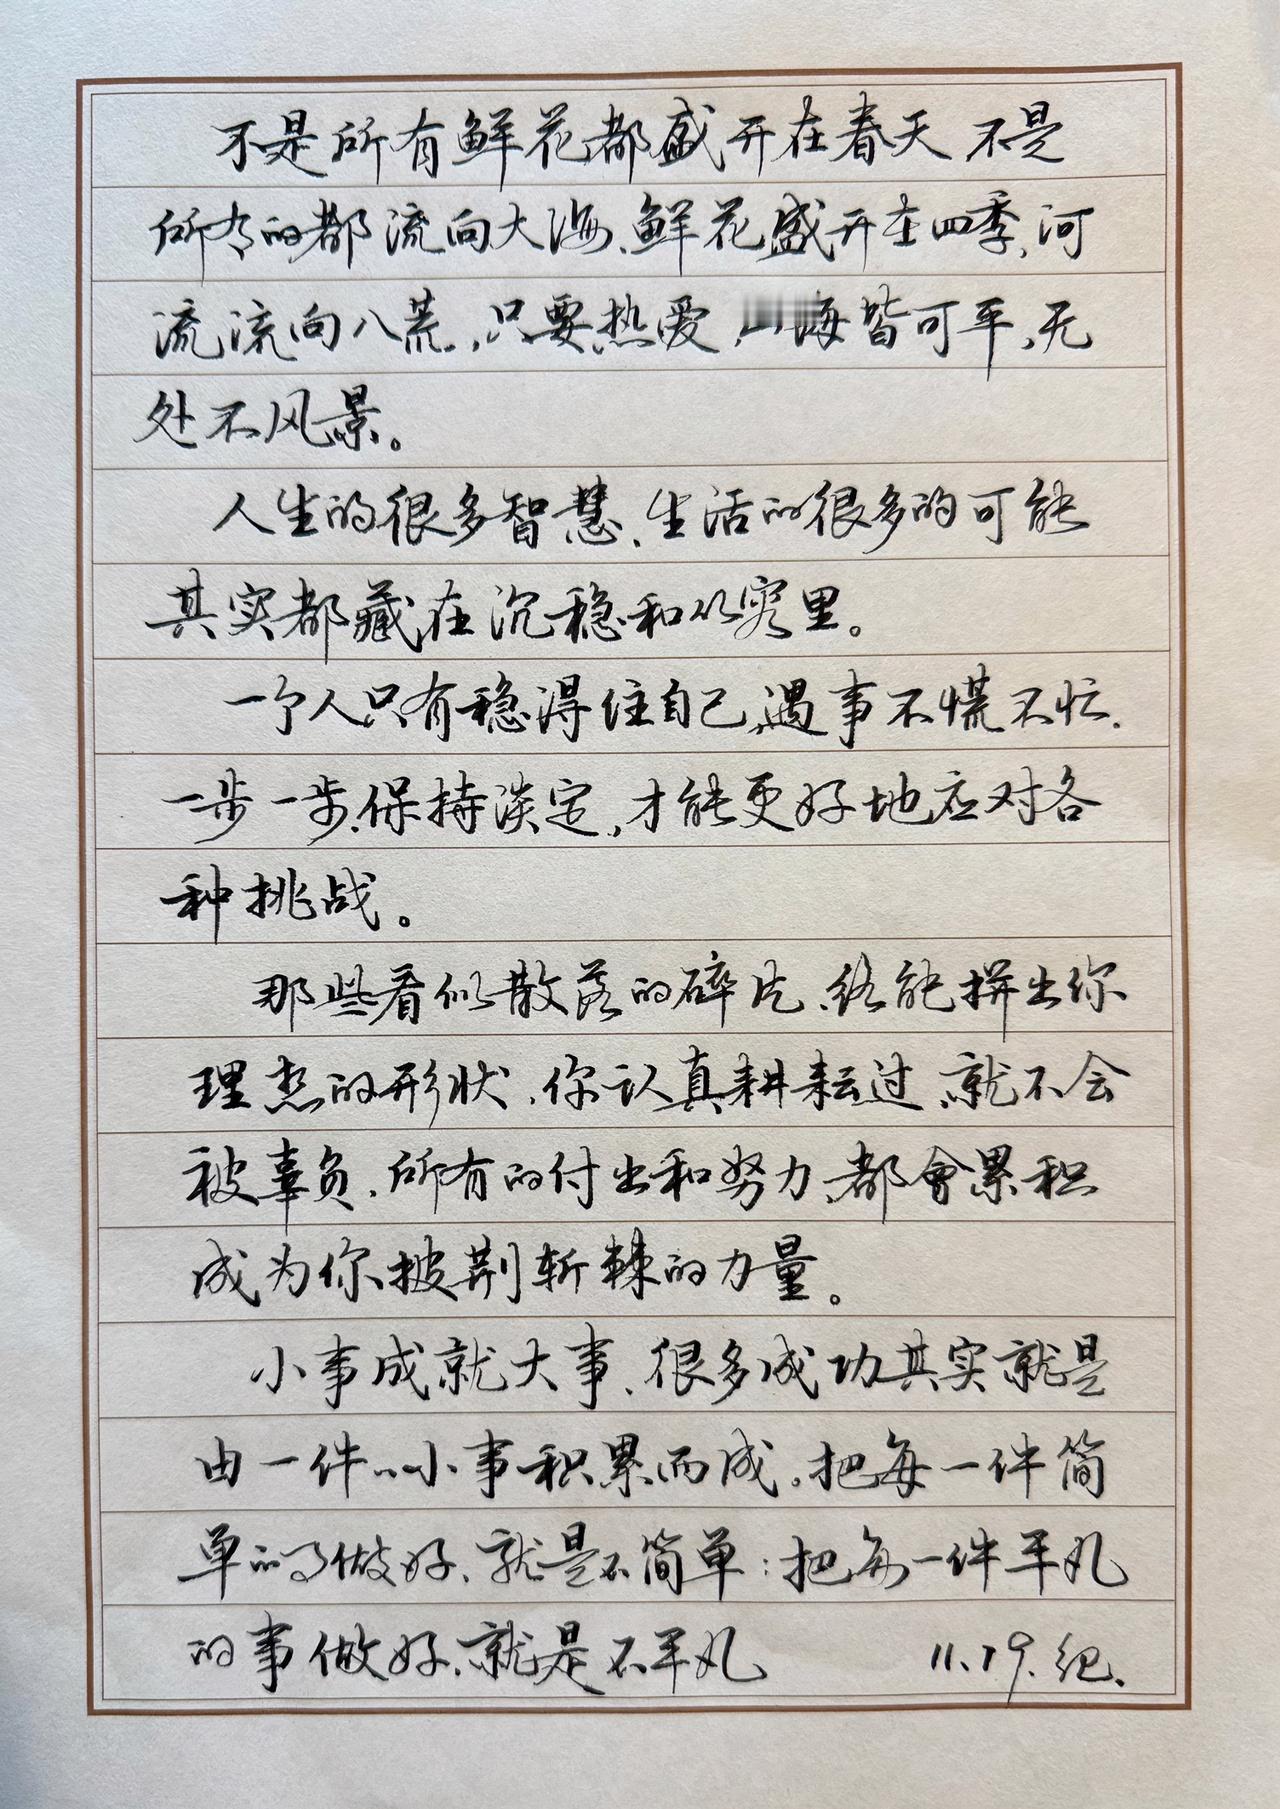 不是所有鲜花都盛开在春天,不是
所有的都流向大海、鲜花盛开在四季,河
流流向八荒.,只要热爱,山海皆可平,无
处不风景。
人生的很多智慧、生活的很多的可能
其实都藏在沉稳和从容里。
一个人只有稳得住自己,遇事不慌不忙.
一步一步,保持淡定,才能更好地应对各
种挑战。
那些看似散落的碎片、终能拼出你
理想的形状、你认真耕耘过、就不会
被辜负、所有的付出和努力、都會累积
成为你披荆斩棘的力量。
小事成就大事、很多成功其实就是
由一件小事积累而成。把每一件简
单的事做好、就是不简单:把每一件平凡
的事做好、就是不平凡
11.19.纪.